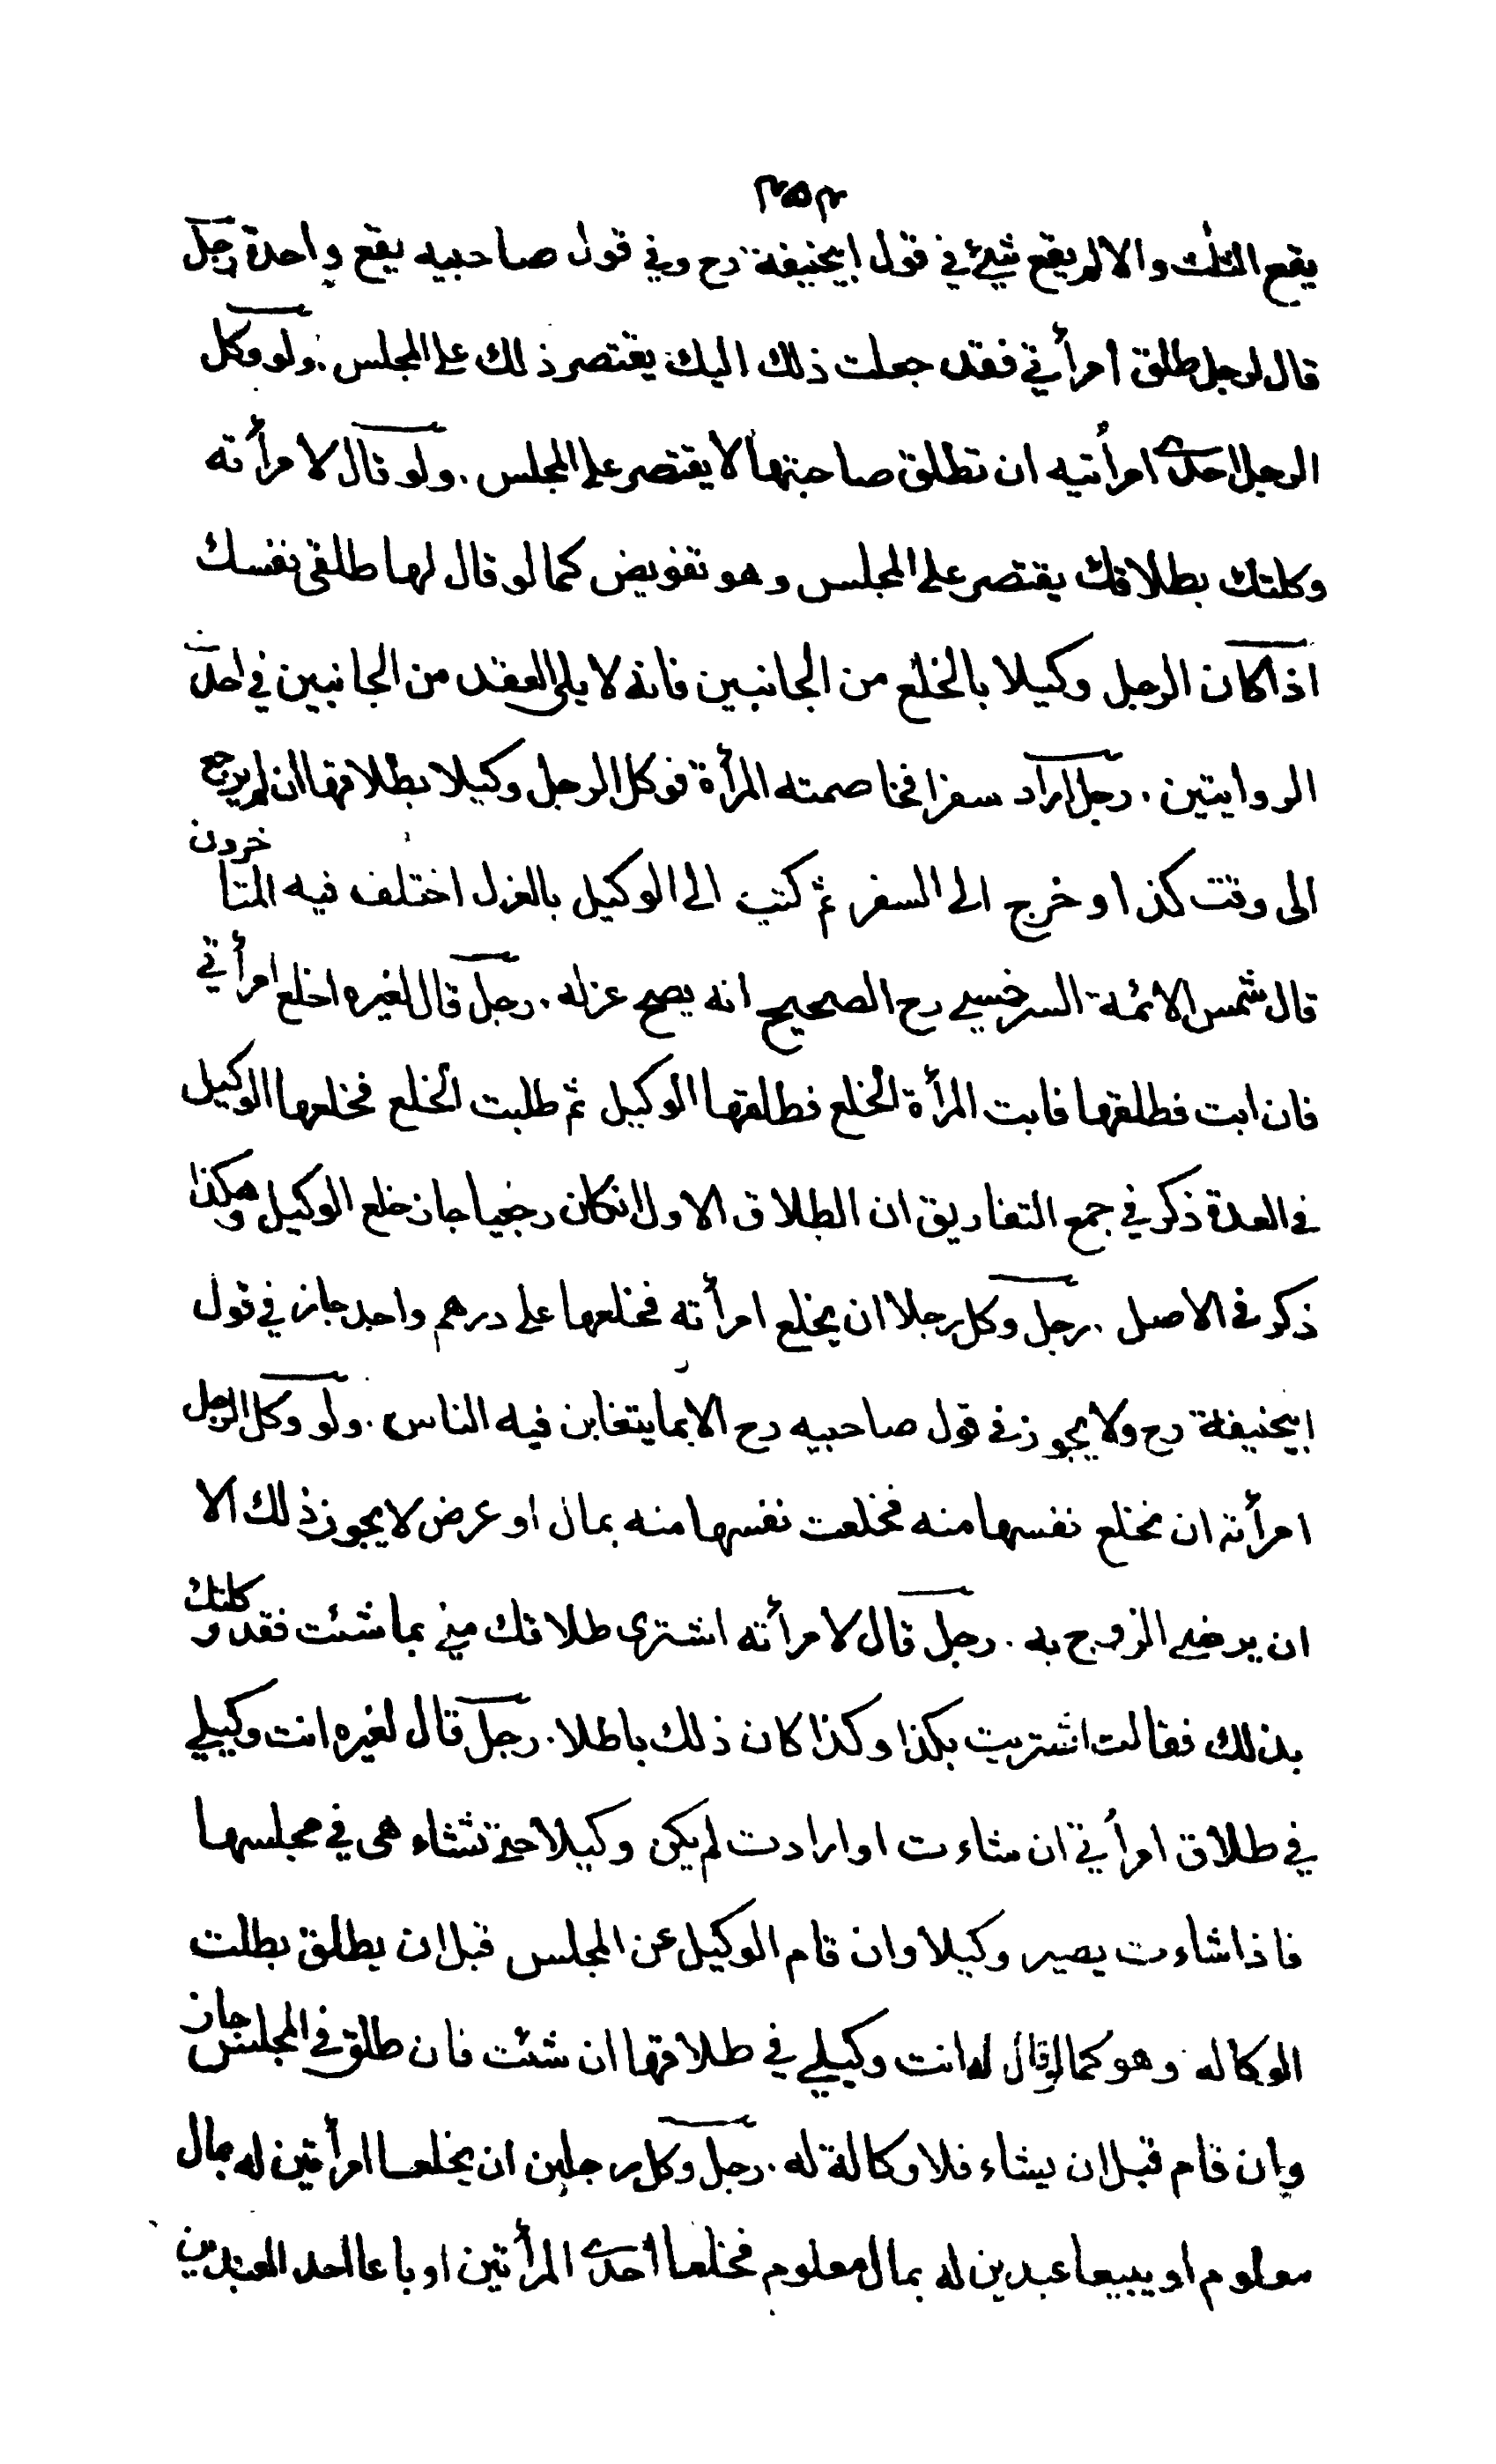 ٢٥٣
يقع الثلث والا لم يقع شيئ في قول ابيحنيفة رح وفي قول صاحبيه يقع واحدة رجل
قال لرجل طلق امرأتي فقد جعلت ذلك اليك يقتصر ذلك على المجلس . ولو وكل
الرجل احدى امرأتيه ان تطلق صاحبتها لا يقتصر على المجلس . ولو قال لامرأته
وكلتك بطلاقك يقتصر على المجلس وهو تفويض كما لو قال لها طلقي نفسك
اذا كان الرجل وكيلا بالخلع من الجانبين فانه لا يلى العقد من الجانبين في احدى
الروايتين . رجل اراد سفرا فخاصمته المرأة فوكل الرجل وكيلا بطلاقها ان لم يرجع
الى وقت كذا وخرج الى السفر ثم كتب الى الوكيل بالعزل اختلف فيه المتاخرون
قال شمس الائمة السرخسي رح الصحيح انه يصح عزله . رجل قال لغيره اخلع امرأتي
فان ابت فطلقها فابت المرأة الخلع فطلقها الوكيل ثم طلبت الخلع فخلعها الوكيل
في العدة ذكر في جمع التفاريق ان الطلاق الاول انكان رجعيا جاز خلع الوكيل وهكذا
ذكر في الاصل . رجل وكل رجلا ان يخلع امرأته فخلعها على درهم واحد جاز في قول
ابيحنيفة رح ولا يجوز في قول صاحبيه رح الا بما يتغابن فيه الناس . ولو وكل الرجل
امرأته ان تخلع نفسها منه فخلعت نفسها منه بمال او عرض لا يجوز ذلك الا
ان يرضى الزوج به . رجل قال لامرأته اشترى طلاقك مني بما شئت فقد وكلتك
بذلك فقالت اشتريت بكذا وكذا كان ذلك باطلا . رجل قال لغيره انت وكيلي
في طلاق امرأتي ان شاءت او ارادت لم يكن وكيلا حتى تشاء هى في مجلسها
فاذا شاءت يصير وكيلا وان قام الوكيل عن المجلس قبل ان يطلق بطلت
الوكاله وهو كما لو قال له انت وكيلي في طلاقها ان شئت فان طلق في المجلس جاز
وان قام قبل ان يشاء فلا وكالة له . رجل وكل رجلين ان يخلعا امرأتين له بمال
معلوم او يبيعا عبدين له بمال معلوم فخلعا احدى المرأتين او باعا احد العبدين